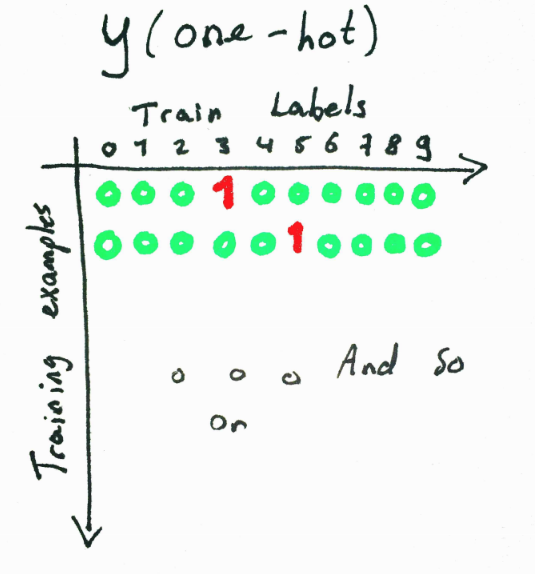 y (one-hot)
Train Labels
0 1 2 3 4 5 6 7 8 9
0 0 0 1 0 0 0 0 0 0
0 0 0 0 0 1 0 0 0 0
Training examples
o o o And so
on